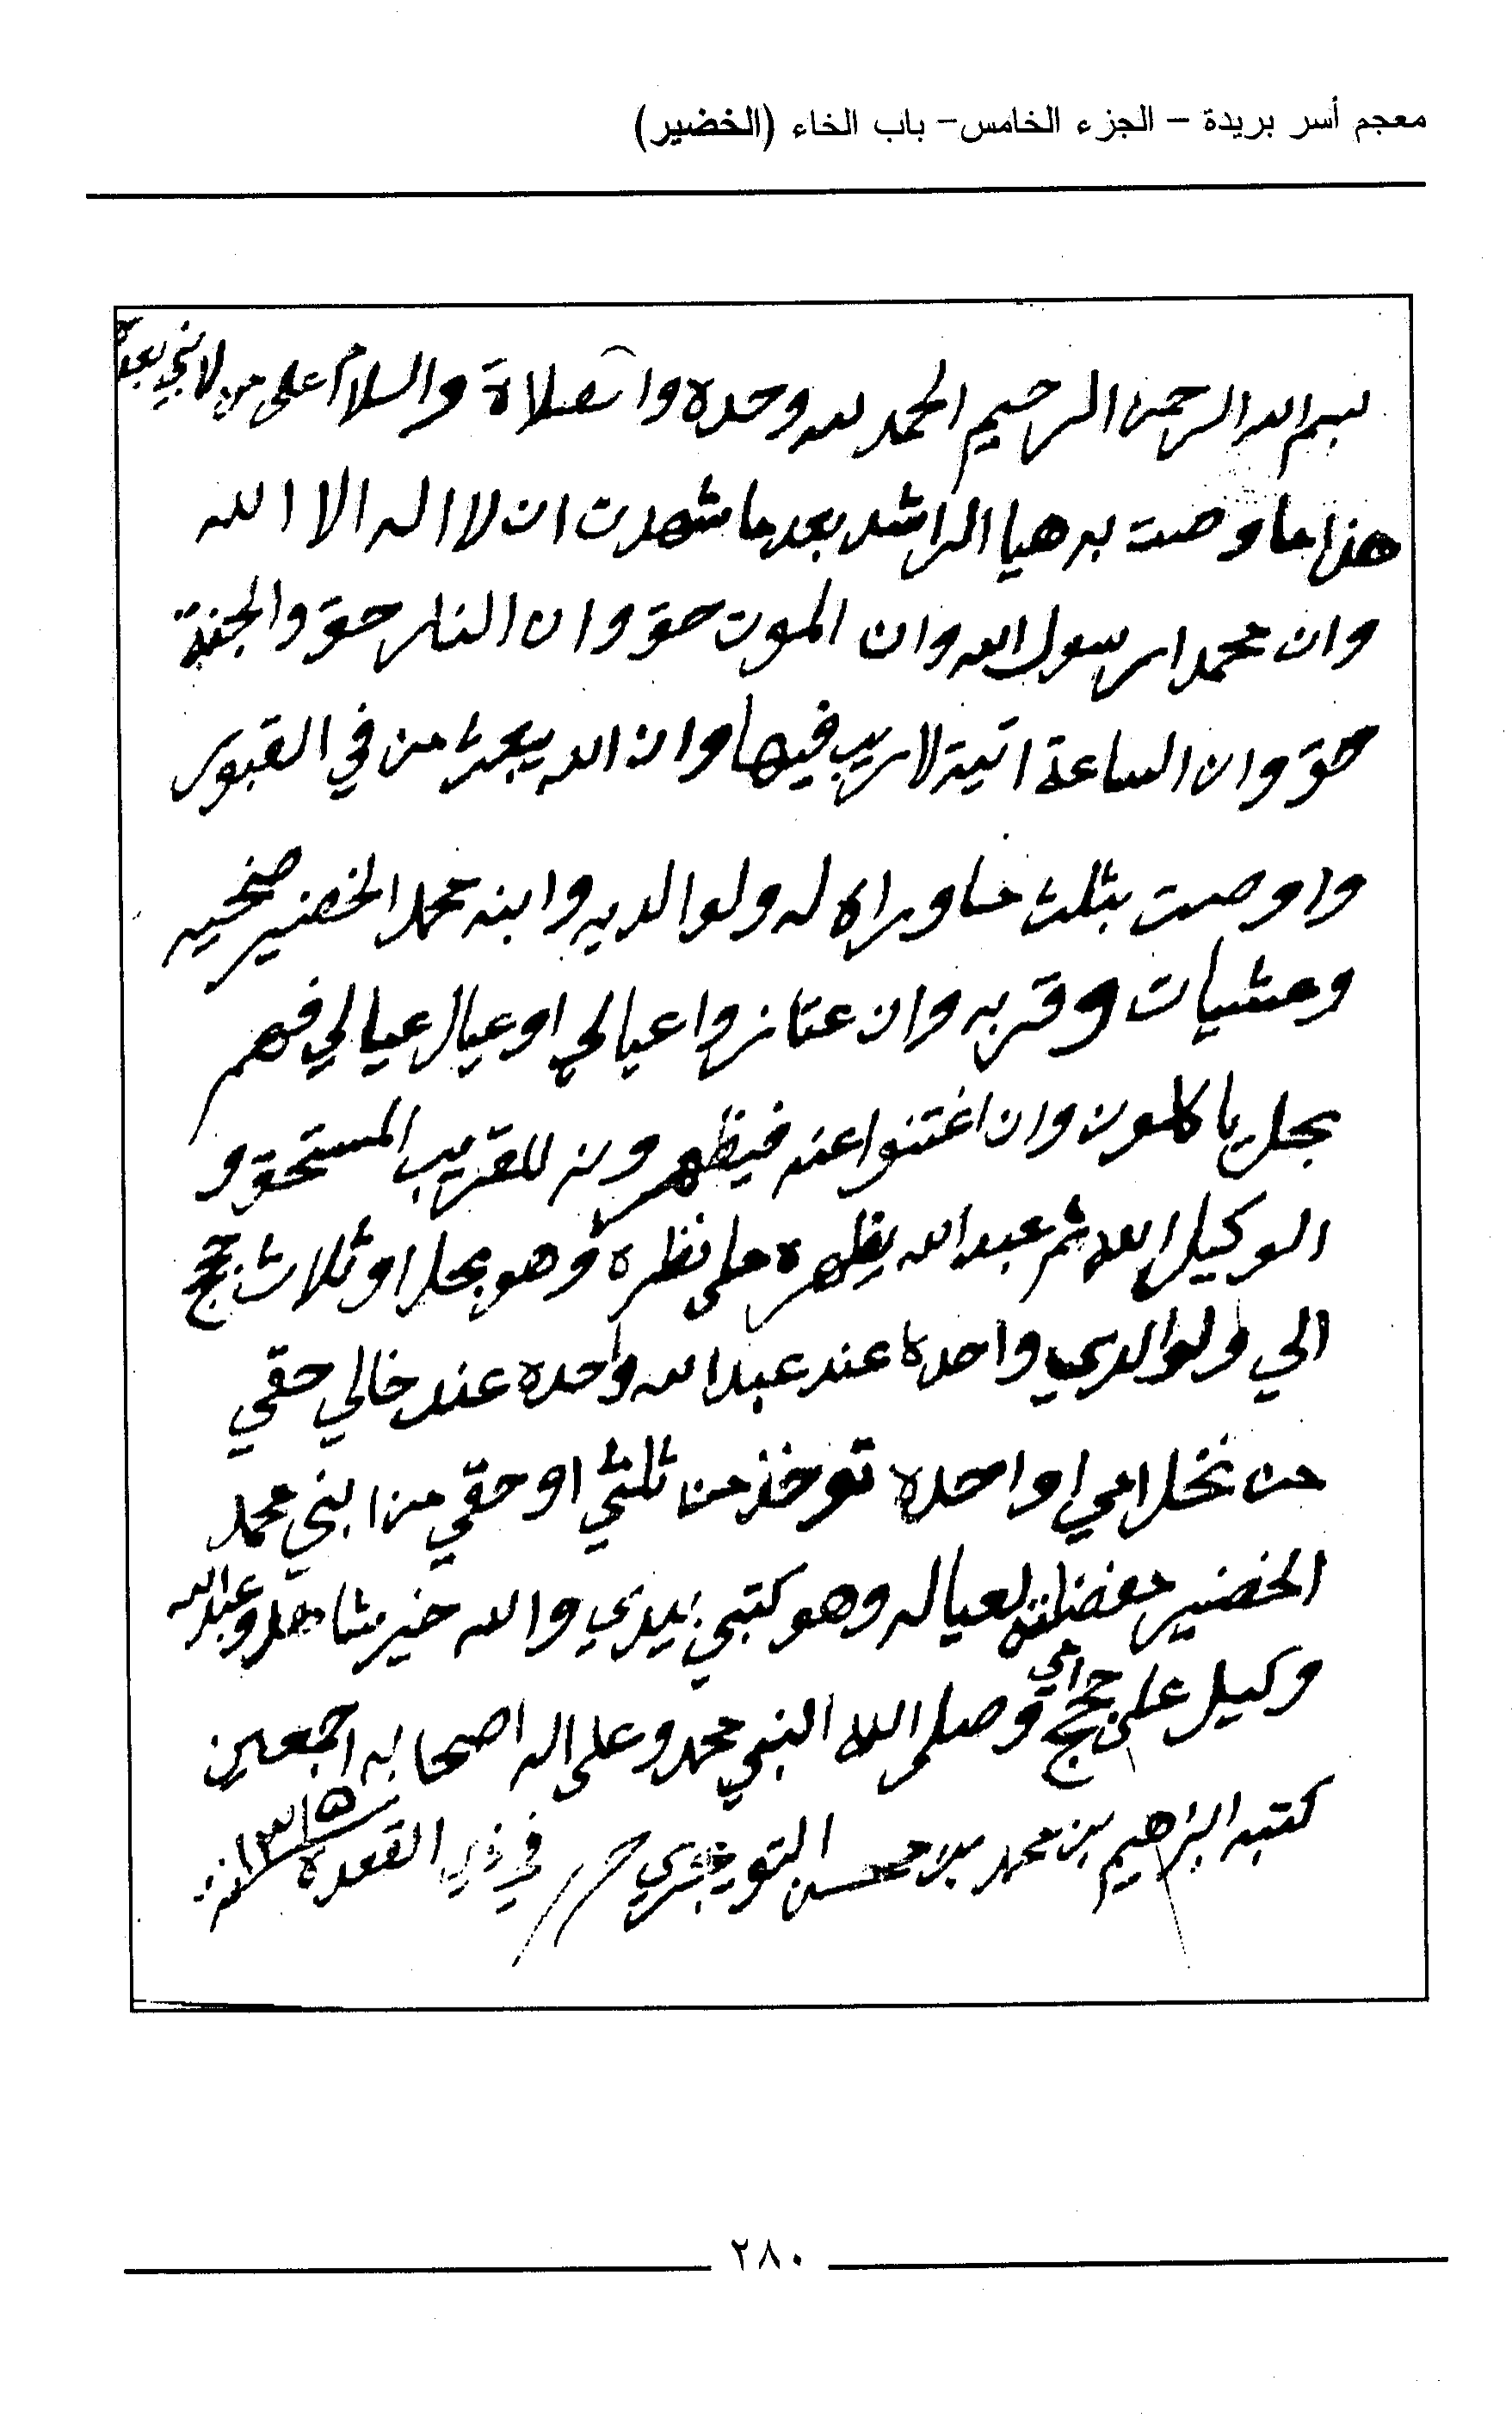 معجم أسر بريدة – الجزء الخامس– باب الخاء (الخضير)
بسم الله الرحمن الرحيم الحمد لله وحده والصلاة والسلام على من لا نبي بعده
هذا ما وصت به هيا الراشد بعد ما شهدت ان لا اله الا الله
وان محمدا رسول الله وان الموت حق وان النار حق والجنة
حق وان الساعة اتية لا ريب فيها وان الله يبعث من في القبور
واوصت بثلث ما وراه له ولوالديه وابنه محمد الخضير ضحيه
وعشيات وقربه وان عتازوا عيالي او عيال عيالي فهم
بحل ياكلون وان اغتنوا عنه فيظهرونه للقريب المستحق و
الوكيل الله ثم عبدالله يظهره على نظره وهو بحل او ثلاث حجج
الي ولوالدي واحده عند عبدالله واحده عند خالي حقي
من نخل امي او احده توخذ من ثلثي او حقي من ابني محمد
الخضير لعياله وهو كتبي بيدي والله خير شاهد وعبدالله
وكيل على حجج امي وصلى الله النبي محمد وعلى اله اصحابه اجمعين
كتبه ابراهيم بن محمد بن محسن التويجري في ذي القعدة سنة ١٣١٥
٢٨٠